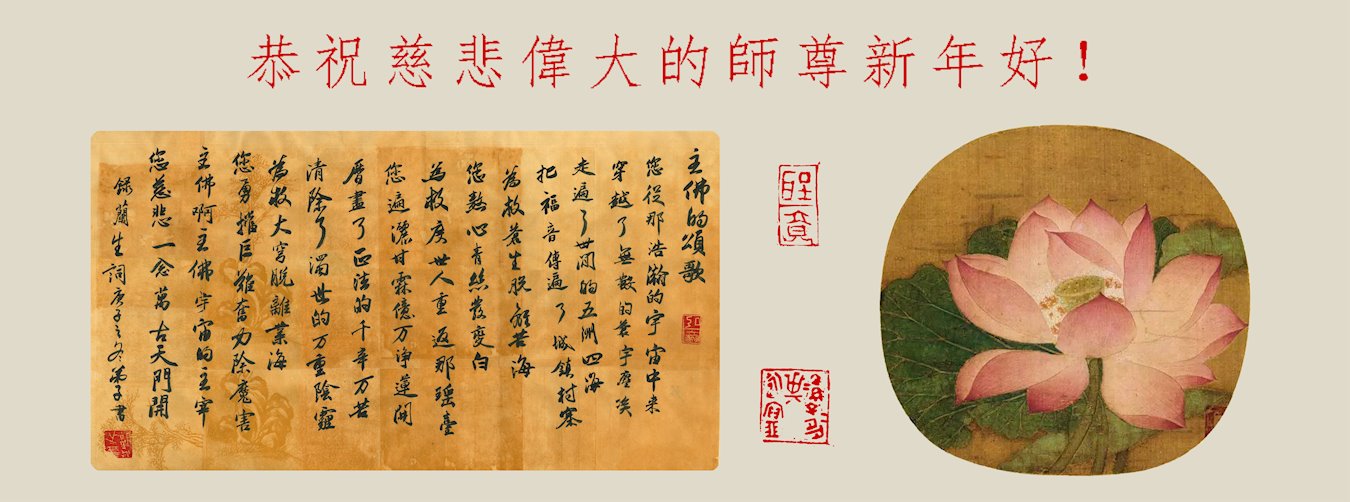 恭祝慈悲偉大的師尊新年好！
主佛的頌歌
您從那浩瀚的宇宙中来
穿越了無数的蒼宇塵埃
走遍了世间的五洲四海
把福音傳遍了城鎮村寨
為救蒼生脱離苦海
您熬心青絲髮變白
為救度世人重返那瑶臺
您遍灑甘霖億万净蓮開
曆盡了正法的千辛万苦
清除了濁世的万重陰霾
為救大穹脱離業海
您勇擔巨難奮力除魔害
主佛啊主佛宇宙的主宰
您慈悲一念萬古天門開
録蘭生詞庚子之冬弟子書